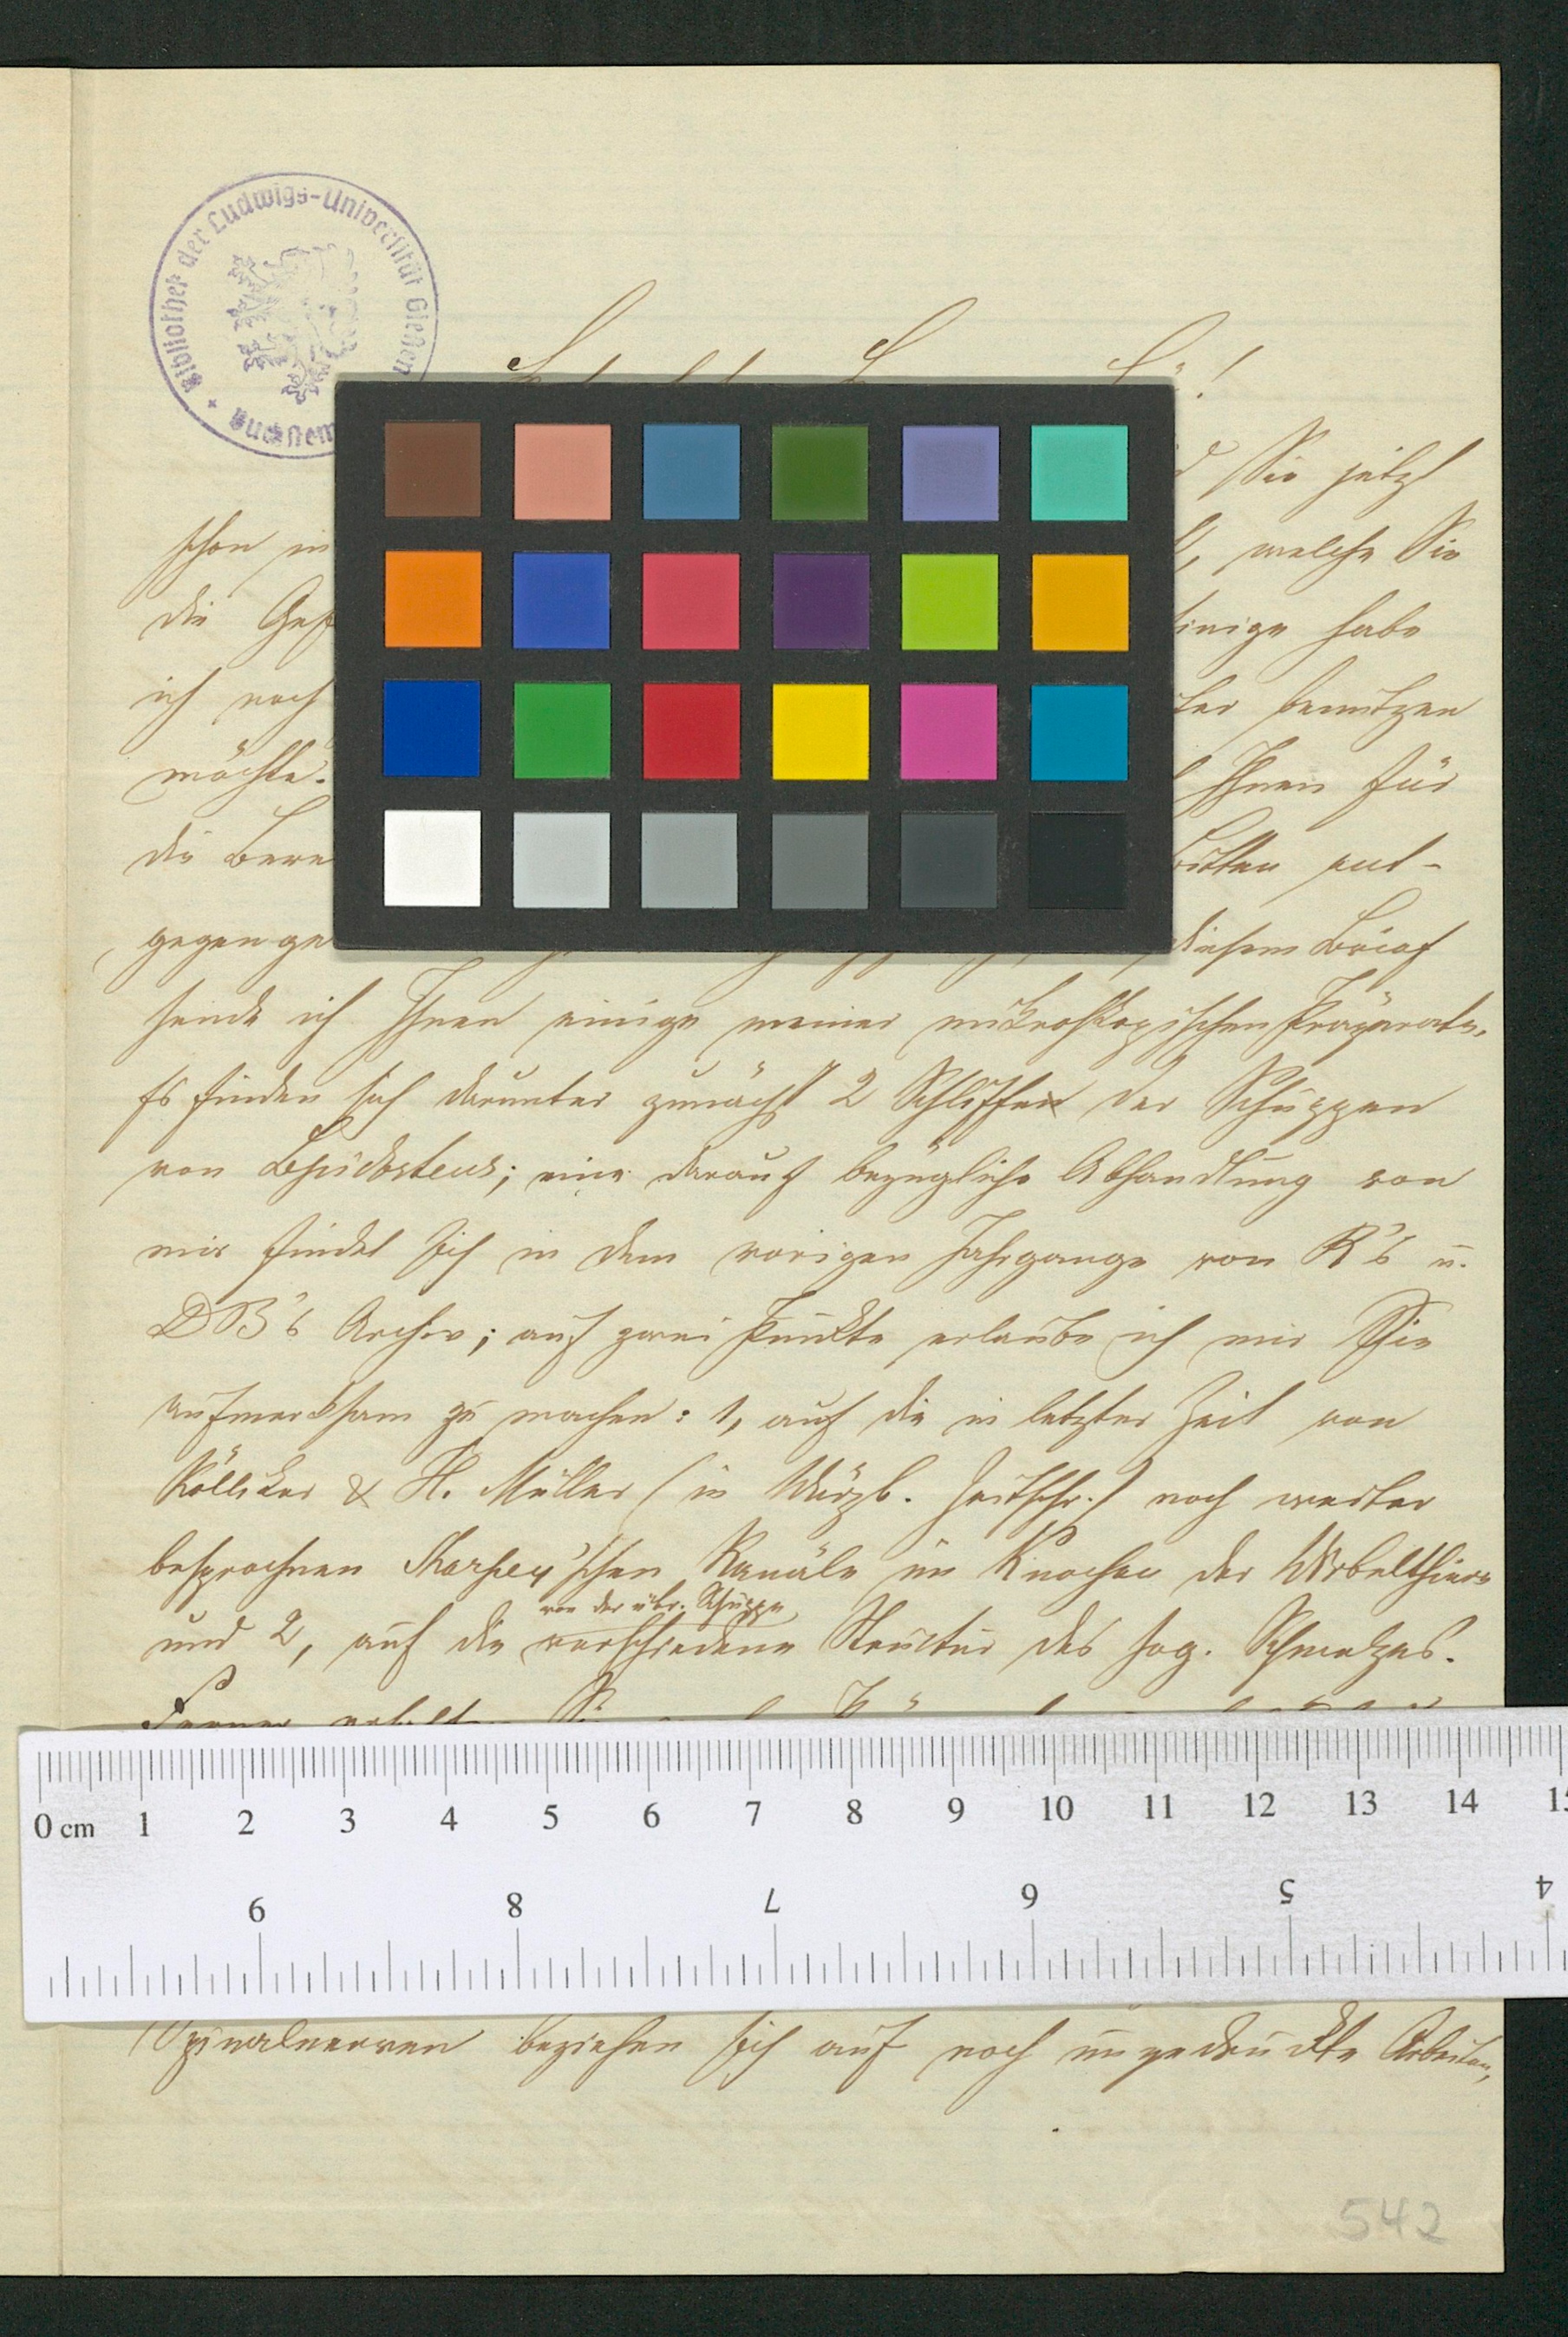 Bibliothek der Ludwigs-Universität Gießen
Sie jetzt
schon in
welche Sie
die
einige habe
ich noch
benutzen
möchte.
Ihnen für
die
ent-
gegen
diesem Brief
sende ich Ihnen einige meiner mikroskopischen Präparate.
Es finden sich darunter zunächst 2 Schliffe der Schuppen
von Lepidosteus; eine darauf bezügliche Abhandlung von
mir findet sich in dem vorigen Jahrgange von R's u.
DB's Archiv; auf zwei Punkte erlaube ich mir Sie
aufmerksam zu machen: 1, auf die in letzter Zeit von
Kölliker & H. Müller (in Würzb. Zeitschr.) noch weiter
besprochnen Sharpey'schen Kanäle im Knochen der Wirbelthiere
von der übr. Schuppe
und 2, auf die verschiedene Structur des sog. Schmelzes.
Ferner
0 cm 1 2 3 4 5 6 7 8 9 10 11 12 13 14
9 8 7 6 5 4
Spinalnerven beziehen sich auf noch ungedruckte Arbeiten,
542